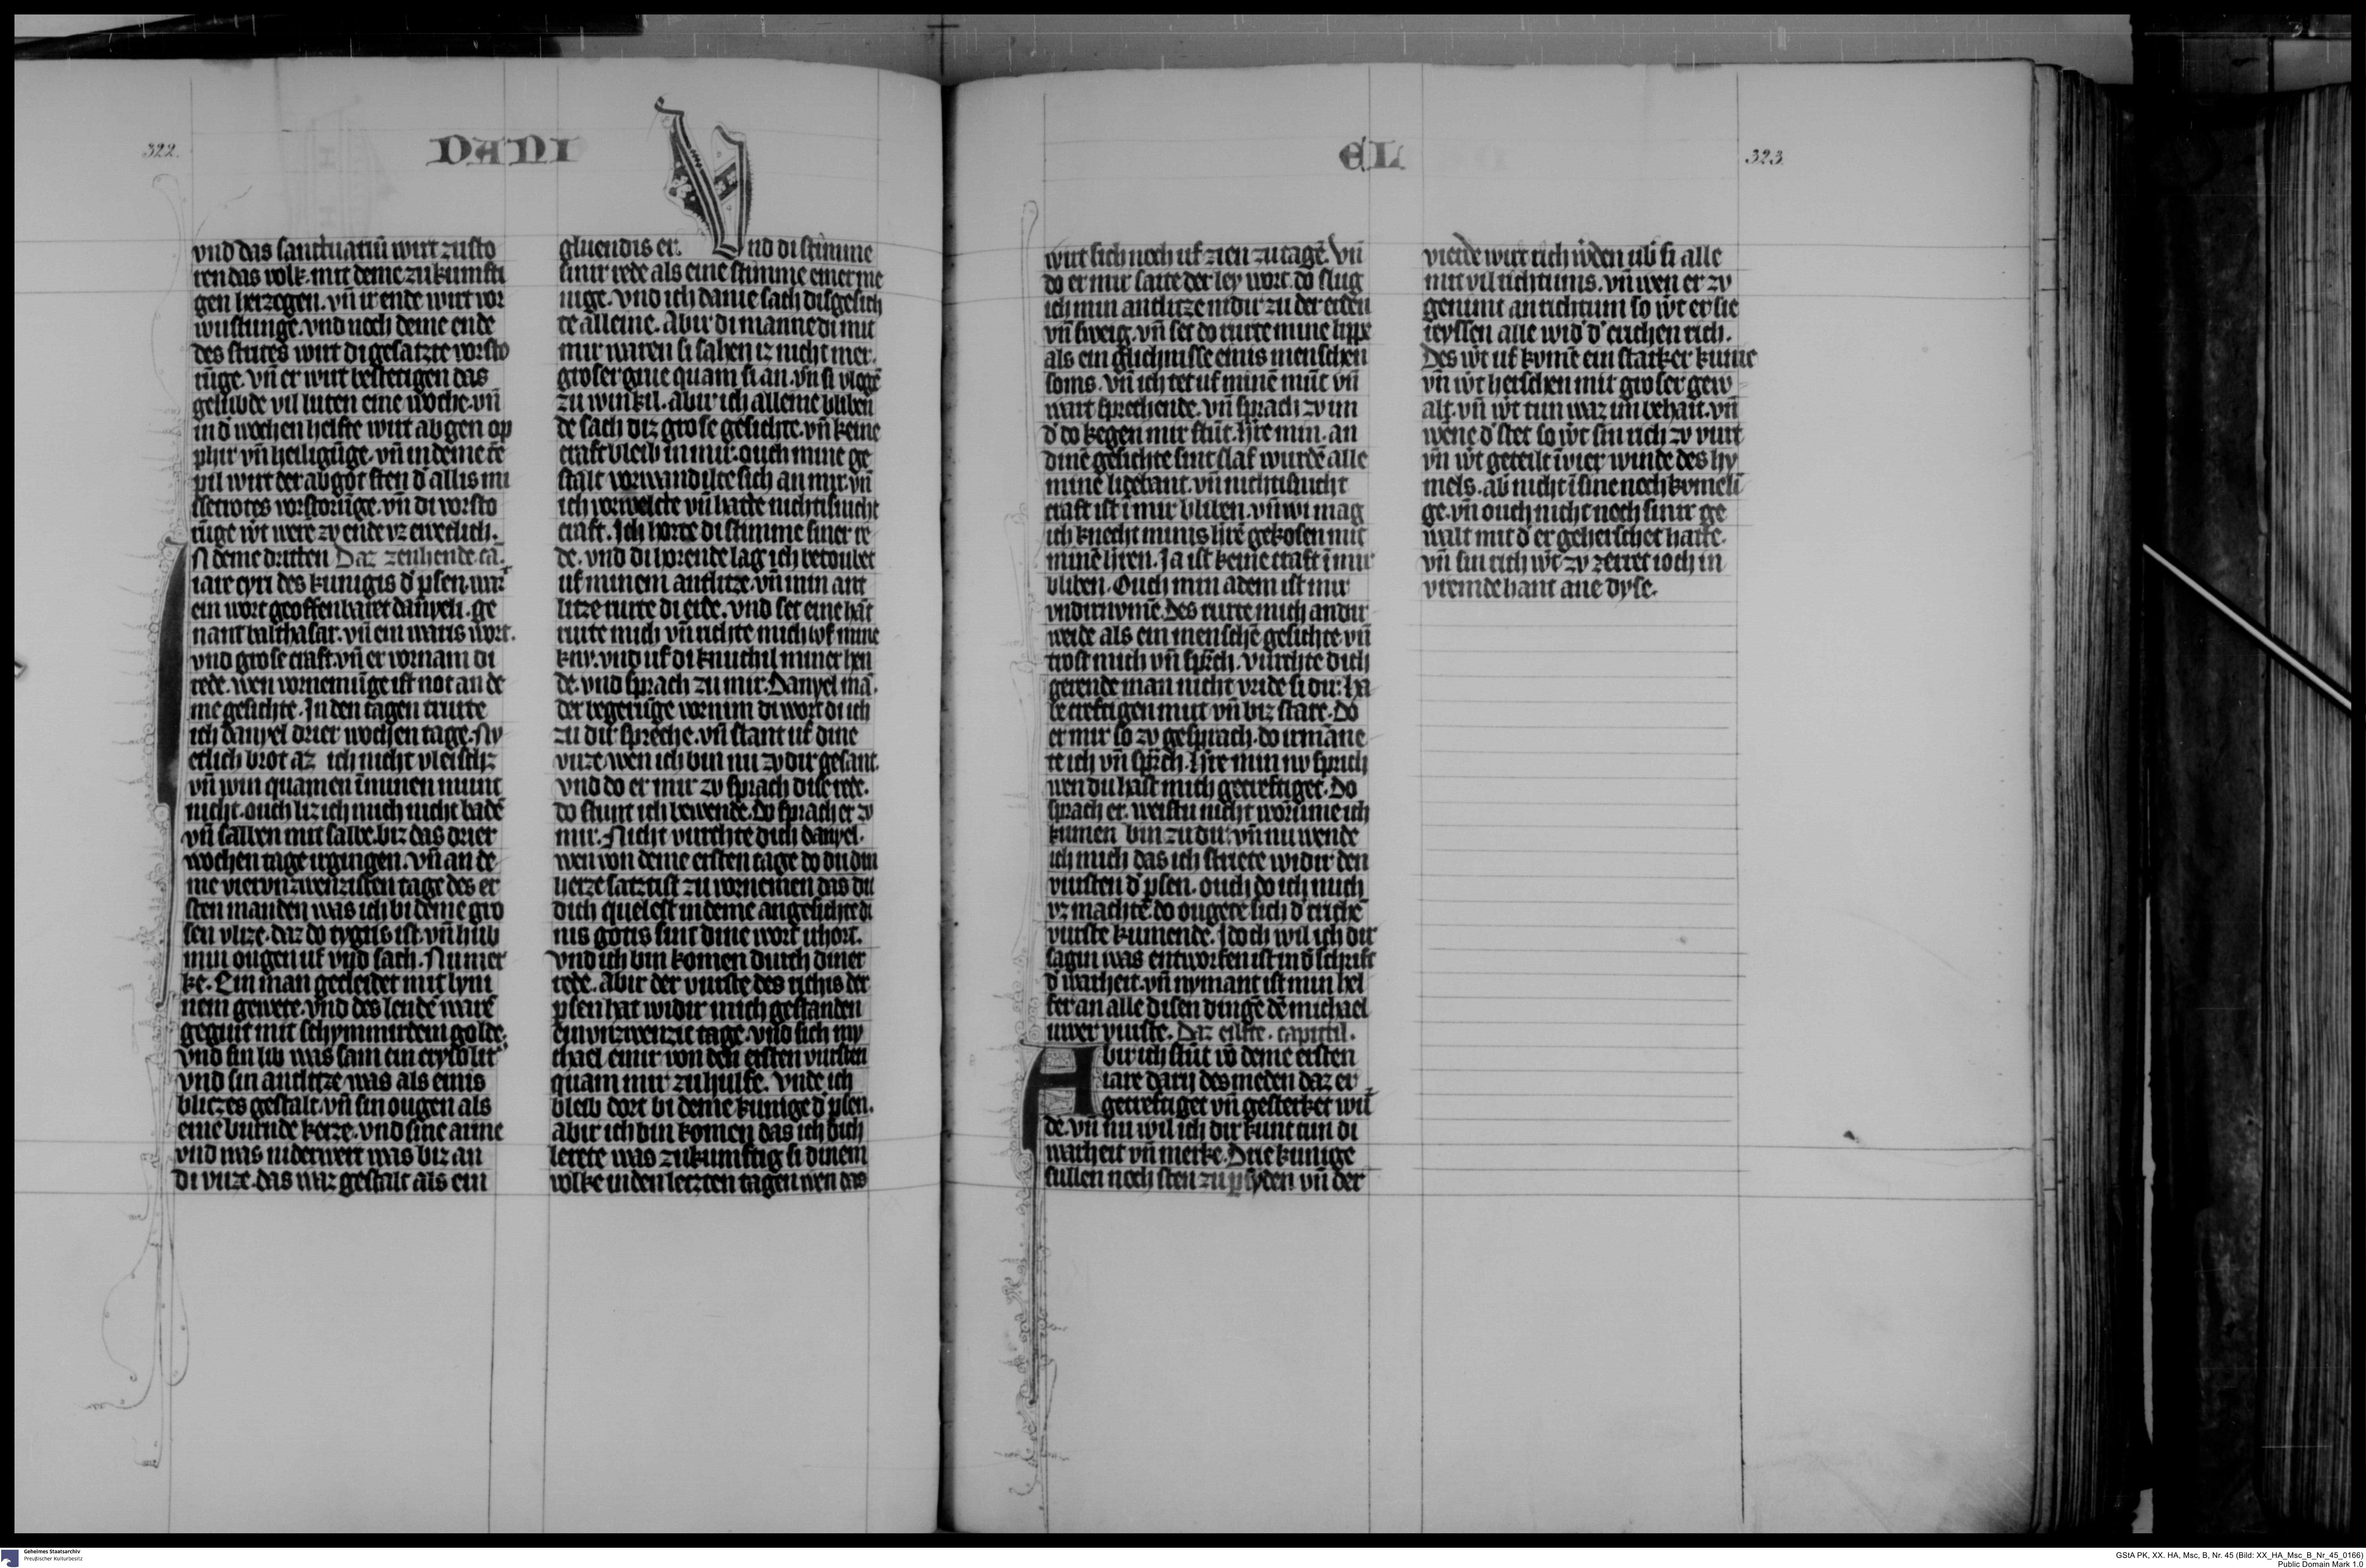 322.
DANI
vnd das sanctuariū wirt zusto
ren das volk. mit deme zukumfti
gen herzogen. vn̄ ir ende wirt vor
wustunge. vnd noch deme ende
des strites wirt di gesatzte vorsto
rūge. vn̄ er wirt bestetigen das
gelubde vil luten eine woche. vn̄
in d̾ wochen helfte wirt abgen op
phir vn̄ heiligūge. vn̄ in deme tē
pil wirt der abgot sten d̾ allis mi
ssetrotes vorstorūge. vn̄ di vorsto
rūge w̾t were zv ende vz eweclich.
N deme dritten Daz zenhende ca.
iare cyri des kunigis d̾ ꝑsen. wart
ein wort geoffenbaret danyeli. ge
nant balthasar. vn̄ ein waris wort.
vnd grose craft. vn̄ er vornam di
rede. wen vornemūge ist not an de
me gesichte. In den tagen trurte
ich danyel drier wochen tage. Ny
etlich brot az ich nicht vleischz
vn̄ win quamen ī minen munt
nicht. ouch liz ich mich nicht badē
vn̄ salben mit salbe. biz das drier
wochen tage irgingen. vn̄ an de
me viervnzwenzisten tage des er
sten manden was ich bi deme gro
sen vlize. daz do tygris ist. vn̄ hub
min ougen uf vnd sach. Nu mer
ke. Ein man gecleidet mit lyni
nem gewete. vnd des lendē warē
gegurt mit schymmirdem golde.
vnd sin lib was sam ein crysolit
vnd sin antlitze was als einis
blitzes gestalt. vn̄ sin ougen als
eine burnde kerze. vnd sine arme
vnd was niderwert was biz an
di vuze. das waz gestalt als ein
gluendis er. Vnd di stimme
sinir rede als eine stimme einer me
nige. vnd ich daniel sach dis gesich
te alleine. Abir di manne di mit
mir waren si sahen iz nicht mer.
groser grue quam si an. vn̄ si vlogē
zu winkil. Abir ich alleine bliben
de sach diz grose gesichte. vn̄ keine
craft bleib in mir. ouch mine ge
stalt vorwandilte sich an mir. vn̄
ich vorwelcte vn̄ hatte nichtisnicht
craft. Ich horte di stimme siner re
de. vnd di horende lag ich betoubet
uf minem antlitze. vn̄ min ant
litze rurte di erde. vnd set eine hāt
rurte mich vn̄ richte mich uf mine
kny. vnd uf di knuchil miner hen
de. vnd sprach zu mir. Danyel mā.
der begerūge vornim di wort di ich
zu dir spreche. vn̄ stant uf dine
vuze. wen ich bin nu zv dir gesant.
vnd do er mir zv sprach dise rede.
do stunt ich bewende. Do sprach er zv
mir. Nicht vurchte dich danyel.
wen von deme ersten tage do du din
herze satztist zu vornemen das du
dich quelest in deme angesichte di
nis gotis sint dine wort irhort.
vnd ich bin komen durch diner
rede. Abir der vurste des richis der
ꝑsen hat widir mich gestanden
einvnzwenzic tage. vnd sich my
chael einir von den ersten vursten
quam mir zu hulfe. vnde ich
bleib dort bi deme kunige d̾ ꝑsen.
abir ich bin komen das ich dich
lerete was zukumftig si dinem
volke in den letzten tagen wen das
EL
323.
wirt sich noch uf zien zu tagē. vn̄
do er mir saite der ley wort. do slug
ich min antlitze nidir zu der erden
vn̄ sweig. vn̄ set do rurte mine lippē
als ein glichnisse einis menschen
soms. vn̄ ich tet uf minē mūt vn̄
wart sprechende. vn̄ sprach zv im
d̾ do kegen mir stūt. h̾re min. an
dinē gesichte sint slaf wurdē alle
mine ligebant. vn̄ nichtisnicht
craft ist ī mir bliben. vn̄ wi mag
ich knecht minis h̾rē gekosen mit
minē h̾ren. Ja ist keine craft ī mir
bliben. Ouch min adem ist mir
vndirnomē. Des rurte mich andir
weide als ein menschē gesichte vn̄
trost mich vn̄ sp̾ch. vurchte dich
gerende man nicht vride si dir. ha
be creftigen mut vn̄ biz starc. Do
er mir so zv gesprach. do irmāne
te ich vn̄ sp̾ch. h̾re min nv sprich
wen du hast mich gecreftiget. Do
sprach er. weistu nicht worūme ich
kumen bin zu dir. vn̄ nu wende
ich mich das ich striete widir den
vursten d̾ ꝑsen. ouch do ich mich
vz machte. do ougete sich d̾ crichē
vurste kumende. Idoch wil ich dir
sagin was entworfen ist in d̾ schrift
d̾ warheit. vn̄ nymant ist min hel
fer an alle disen dingē dē michael
uwer vurste. Daz eilfte. capittil.
Abir ich stūt vō deme ersten
iare darij des meden daz er
gecreftiget vn̄ gesterket wur
de. vn̄ nu wil ich dir kunt tun di
warheit vn̄ merke. Drie kunige
sullen noch sten zu ꝑsyden vn̄ der
vierde wirt rich w̾den ub̾ si alle
mit vil richtums. vn̄ wen er zv
genimt an richtum so w̾t er sie
reyssen alle wid̾ d̾ crichen rich.
Des w̾t uf komē ein starker kunic
vn̄ w̾t herschen mit groser gew
alt. vn̄ w̾t tun waz im behait. vn̄
wene d̾ stet so w̾t sin rich zv vurt
vn̄ w̾t geteilt ī vier winde des hy
mels. ab̾ nicht ī sine nochkomeli
ge. vn̄ ouch nicht noch sinir ge
walt mit d̾ er geherschet hatte.
vn̄ sin rich w̾t zv zerret ioch in
vremde hant ane dyse.
Geheimes Staatsarchiv
Preußischer Kulturbesitz
GStA PK, XX. HA, Msc, B, Nr. 45 (Bild: XX_HA_Msc_B_Nr_45_0166)
Public Domain Mark 1.0